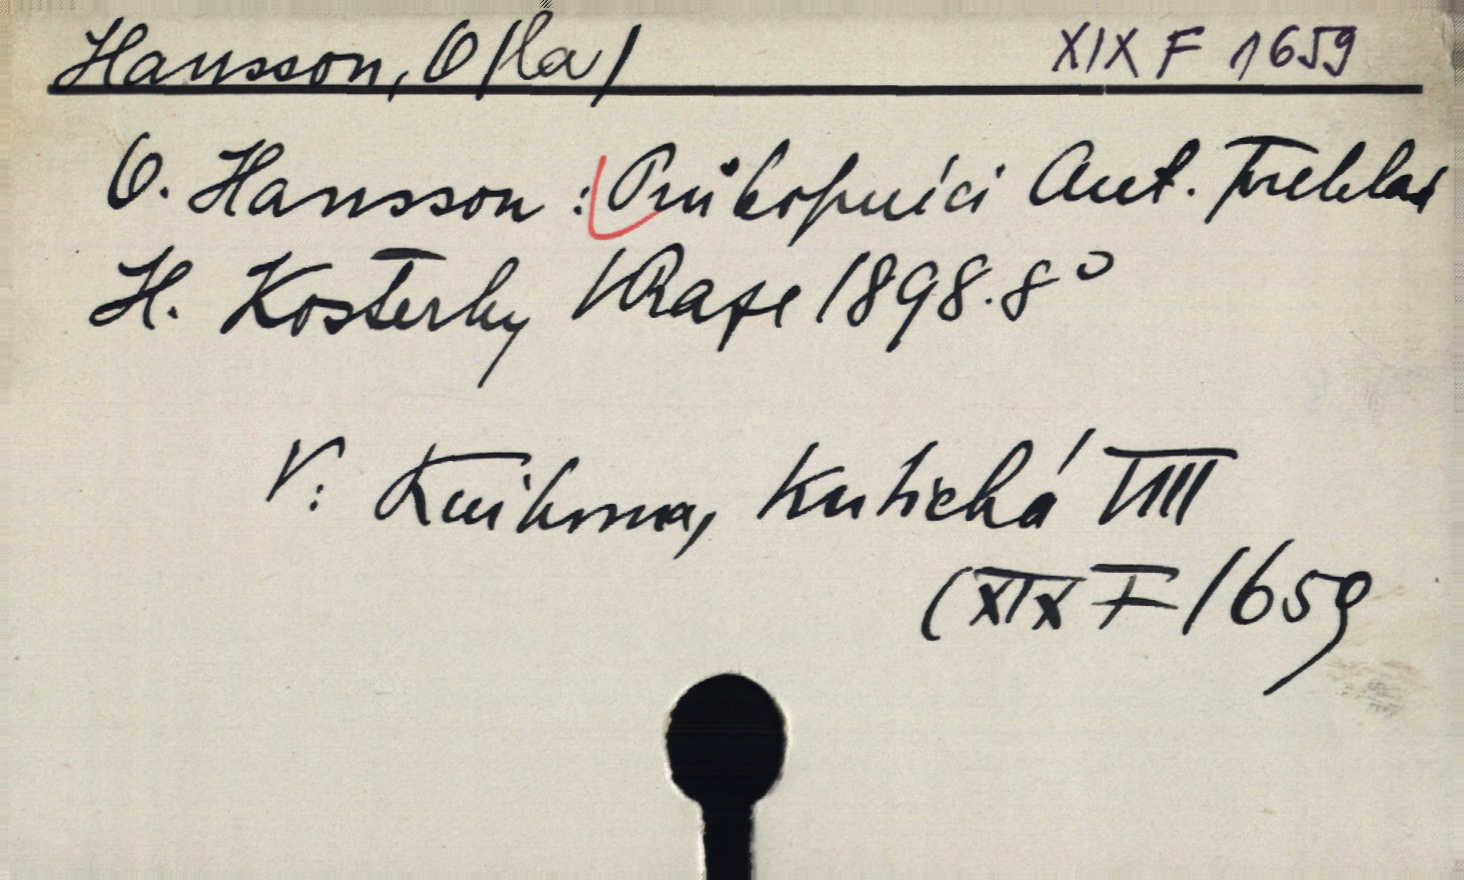 Hansson, O/la/ XIX F 1659
O. Hansson: Průkopníci Aut. překlad
H. Kosterky V Praze 1898. 8°
V: Knihovna, Kritická VIII
(XIX F 1659